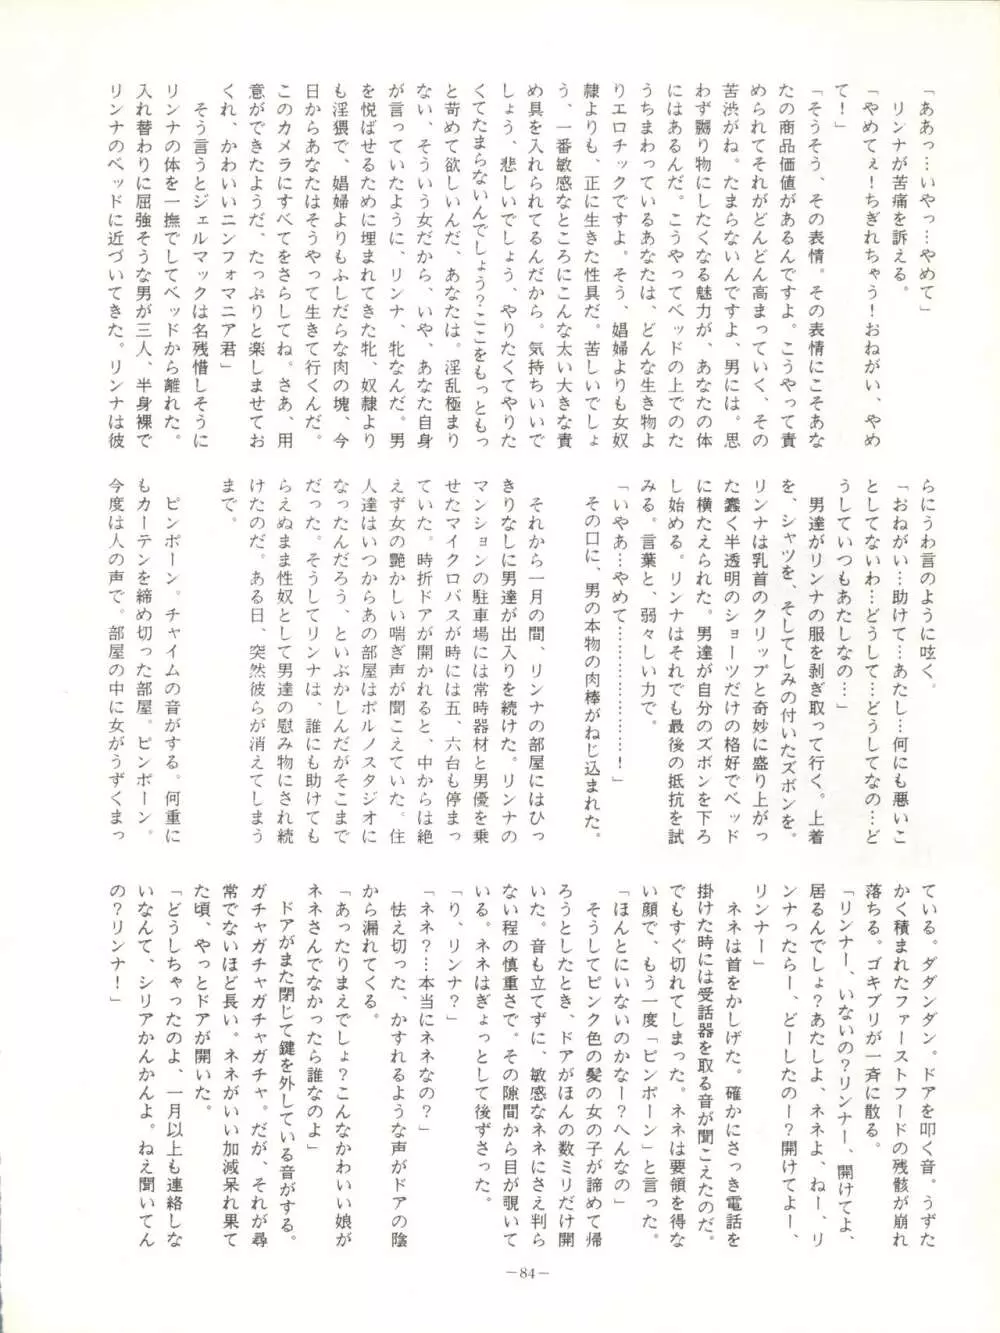 「ああっ…いやっ…やめて」
　リンナが苦痛を訴える。
「やめてぇ！ちぎれちゃう！おねがい、やめ
て！」
「そうそう、その表情。その表情にこそあな
たの商品価値があるんですよ。こうやって責
められてそれがどんどん高まっていく、その
苦渋がね。たまらないんですよ、男には。思
わず嬲り物にしたくなる魅力が、あなたの体
にはあるんだ。こうやってベッドの上でのた
うちまわっているあなたは、どんな生き物よ
りエロチックですよ。そう、娼婦よりも女奴
隷よりも、正に生きた性具だ。苦しいでしょ
う、一番敏感なところにこんな太い大きな責
め具を入れられてるんだから。気持ちいいで
しょう、悲しいでしょう、やりたくてやりた
くてたまらないんでしょう？ここをもっともっ
と苛めて欲しいんだ、あなたは。淫乱極まり
ない、そういう女だから、いや、あなた自身
が言っていたように、リンナ、牝なんだ。男
を悦ばせるために埋まれてきた牝、奴隷より
も淫猥で、娼婦よりもふしだらな肉の塊、今
日からあなたはそうやって生きて行くんだ。
このカメラにすべてをさらしてね。さあ、用
意ができたようだ、たっぷりと楽しませてお
くれ、かわいいニンフォマニア君」
　そう言うとジェルマックは名残惜しそうに
リンナの体を一撫でしてベッドから離れた。
入れ替わりに屈強そうな男が三人、半身裸で
リンナのベッドに近づいてきた。リンナは彼
らにうわ言のように呟く。
「おねがい…助けて…あたし…何にも悪いこ
としてないわ…どうして…どうしてなの…ど
うしていつもあたしなの…」
　男達がリンナの服を剥ぎ取って行く。上着
を、シャツを、そしてしみの付いたズボンを。
リンナは乳首のクリップと奇妙に盛り上がっ
た蠢く半透明のショーツだけの格好でベッド
に横たえられた。男達が自分のズボンを下ろ
し始める。リンナはそれでも最後の抵抗を試
みる。言葉と、弱々しい力で。
「いやあ…やめて………………！」
　その口に、男の本物の肉棒がねじ込まれた。

　それから一月の間、リンナの部屋にはひっ
きりなしに男達が出入りを続けた。リンナの
マンションの駐車場には常時器材と男優を乗
せたマイクロバスが時には五、六台も停まっ
ていた。時折ドアが開かれると、中からは絶
えず女の艶かしい喘ぎ声が聞こえていた。住
人達はいつからあの部屋はポルノスタジオに
なったんだろう、といぶかしんだがそこまで
だった。そうしてリンナは、誰にも助けても
らえぬまま性奴として男達の慰み物にされ続
けたのだ。ある日、突然彼らが消えてしまう
まで。

　ピンポーン。チャイムの音がする。何重に
もカーテンを締め切った部屋。ピンポーン。
今度は人の声で。部屋の中に女がうずくまっ
ている。ダダンダン。ドアを叩く音。うずた
かく積まれたファーストフードの残骸が崩れ
落ちる。ゴキブリが一斉に散る。
「リンナー、いないの？リンナー、開けてよ、
居るんでしょ？あたしよ、ネネよ、ねー、リ
ンナったらー、どーしたのー？開けてよー、
リンナー」
　ネネは首をかしげた。確かにさっき電話を
掛けた時には受話器を取る音が聞こえたのだ。
でもすぐ切れてしまった。ネネは要領を得な
い顔で、もう一度「ピンポーン」と言った。
「ほんとにいないのかなー？へんなの」
　そうしてピンク色の髪の女の子が諦めて帰
ろうとしたとき、ドアがほんの数ミリだけ開
いた。音も立てずに、敏感なネネにさえ判ら
ない程の慎重さで。その隙間から目が覗いて
いる。ネネはぎょっとして後ずさった。
「り、リンナ？」
「ネネ？…本当にネネなの？」
　怯え切った、かすれるような声がドアの陰
から漏れてくる。
「あったりまえでしょ？こんなかわいい娘が
ネネさんでなかったら誰なのよ」
　ドアがまた閉じて鍵を外している音がする。
ガチャガチャガチャガチャ。だが、それが尋
常でないほど長い。ネネがいい加減呆れ果て
た頃、やっとドアが開いた。
「どうしちゃったのよ、一月以上も連絡しな
いなんて、シリアかんかんよ。ねえ聞いてん
の？リンナ！」
－84－